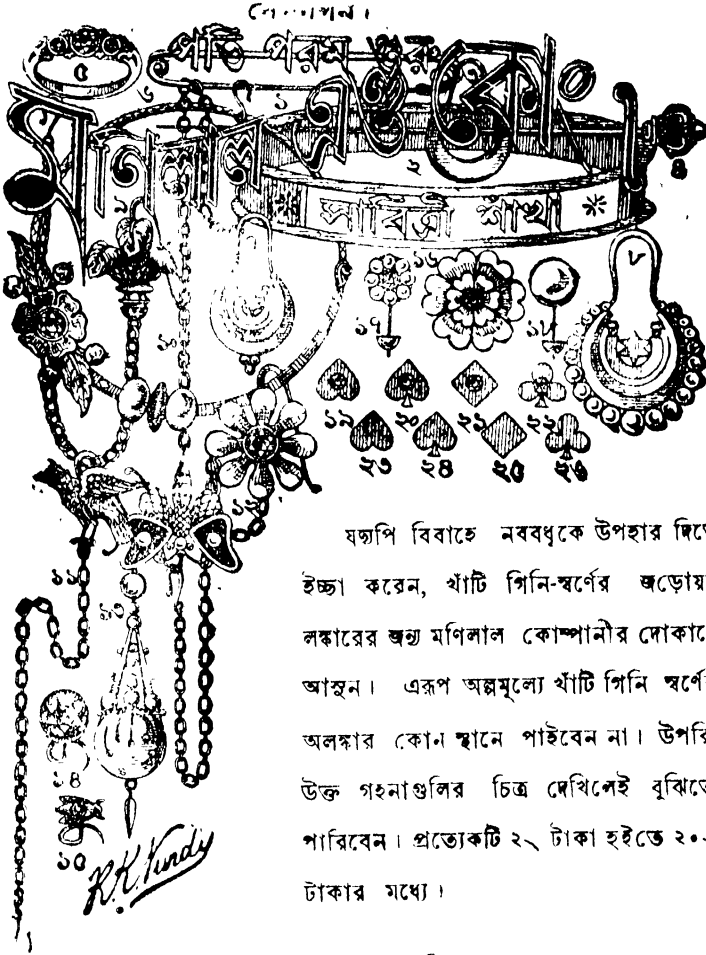 পতি পরম গুরু
মণিলাল এণ্ড কোং
সাবিত্রী শাখা
৫
৬
১
২
৪
৯
৮
১০
১৬
১৭
১৮
১৯ ২০ ২১ ২২
২৩ ২৪ ২৫ ২৬
১২
১১
১৩
১৪
১৫
যদ্যপি বিবাহে নববধূকে উপহার দিতে
ইচ্ছা করেন, খাঁটি গিনি-স্বর্ণের জড়োয়া
লঙ্কারের জন্য মণিলাল কোম্পানীর দোকানে
আসুন। এরূপ অল্পমূল্যে খাঁটি গিনি স্বর্ণের
অলঙ্কার কোন স্থানে পাইবেন না। উপরি
উক্ত গহনাগুলির চিত্র দেখিলেই বুঝিতে
পারিবেন। প্রত্যেকটি ২৲ টাকা হইতে ২০৲
টাকার মধ্যে।